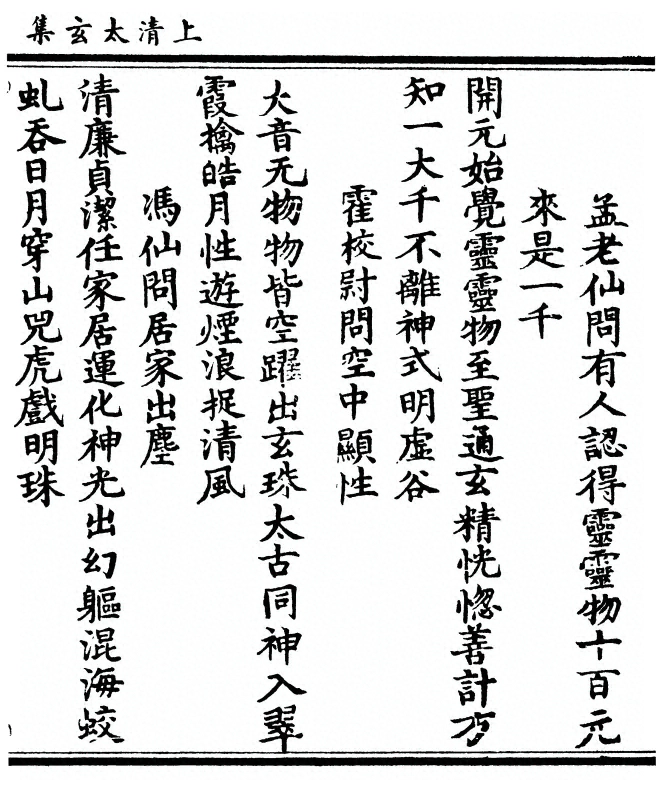 上清太玄集
孟老仙問有人認得靈靈物十百元
來是一千
開元始覺靈靈物至聖通玄精恍惚善計方
知一大千不離神式明虛谷
霍校尉問空中顯性
大音无物物皆空躍出玄珠太古同神入翠
霞擒皓月性遊煙浪捉清風
馮仙問居家出塵
清廉貞潔任家居運化神光出幻軀混海蛟
虬吞日月穿山兕虎戲明珠